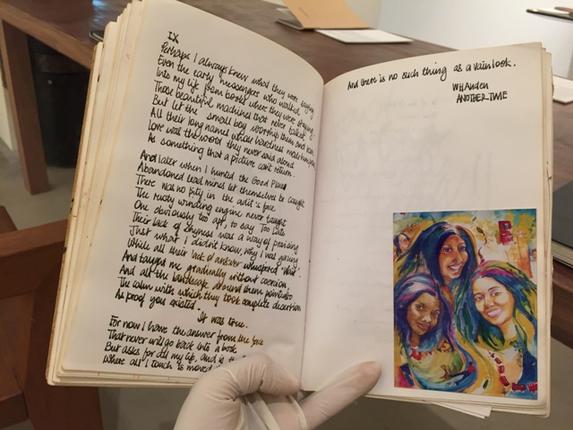 IX
Perhaps I always knew what they were saying
Even the early messengers who walked
Into my life from books where they were staying,
Those beautiful machines that never talked
But let the small boy worship them and learn
All their long names whose hardness made him proud
Love was the word they never said aloud
As something that a picture can't return.
And later when I hunted the Good Place
Abandoned lead mines let themselves be caught
There was no pity in the adit's face
The rusty winding engine never taught
One obviously too apt, to say Too Late
Their lack of shyness was a way of praising
Just what I didn't know, why I was gazing
While all their lack of answer whispered "Wait"
And taught me gradually without coercion,
And all the landscape around them pointed to
The calm with which they took complete desertion
As proof you existed
It was true.
For now I have the answer from the face
That never will go back into a book
But asks for all my life, and is
Where all I touch is moved
And there is no such thing as a vain look.
WH Auden
ANOTHER TIME